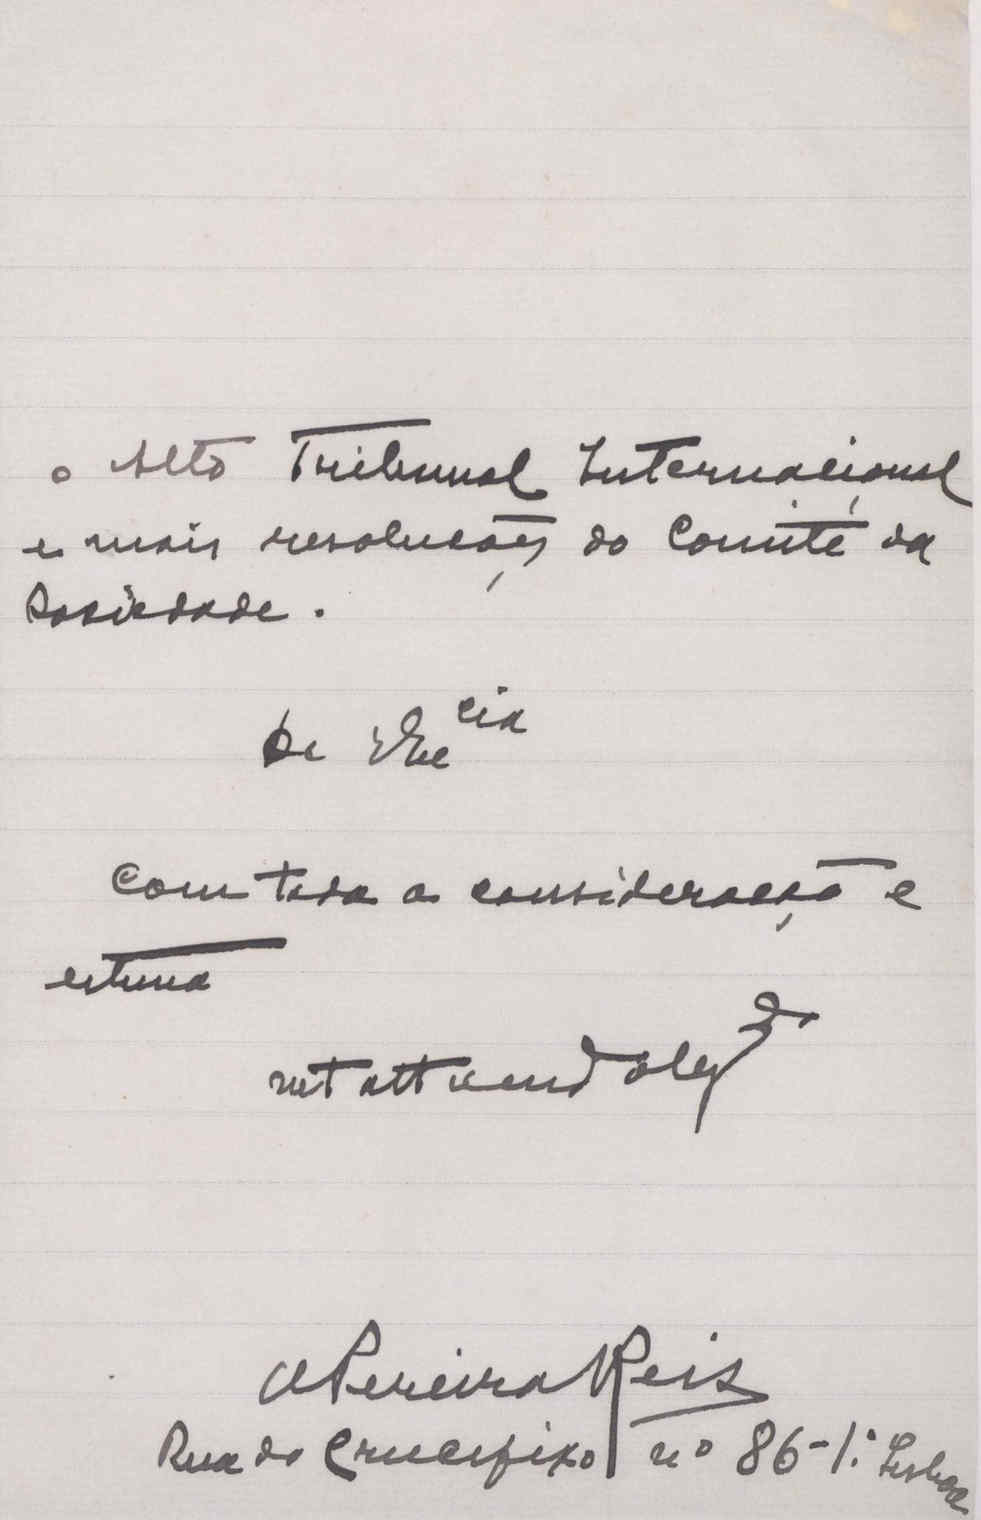 o Alto Tribunal Internacional
e mais resoluções do Comité da
Sociedade.
De V Exc cia
Com toda a consideração e
estima
mt att ven or e obg do
A Pereira Reis
Rua do Crucifixo nº 86-1.º Lisboa